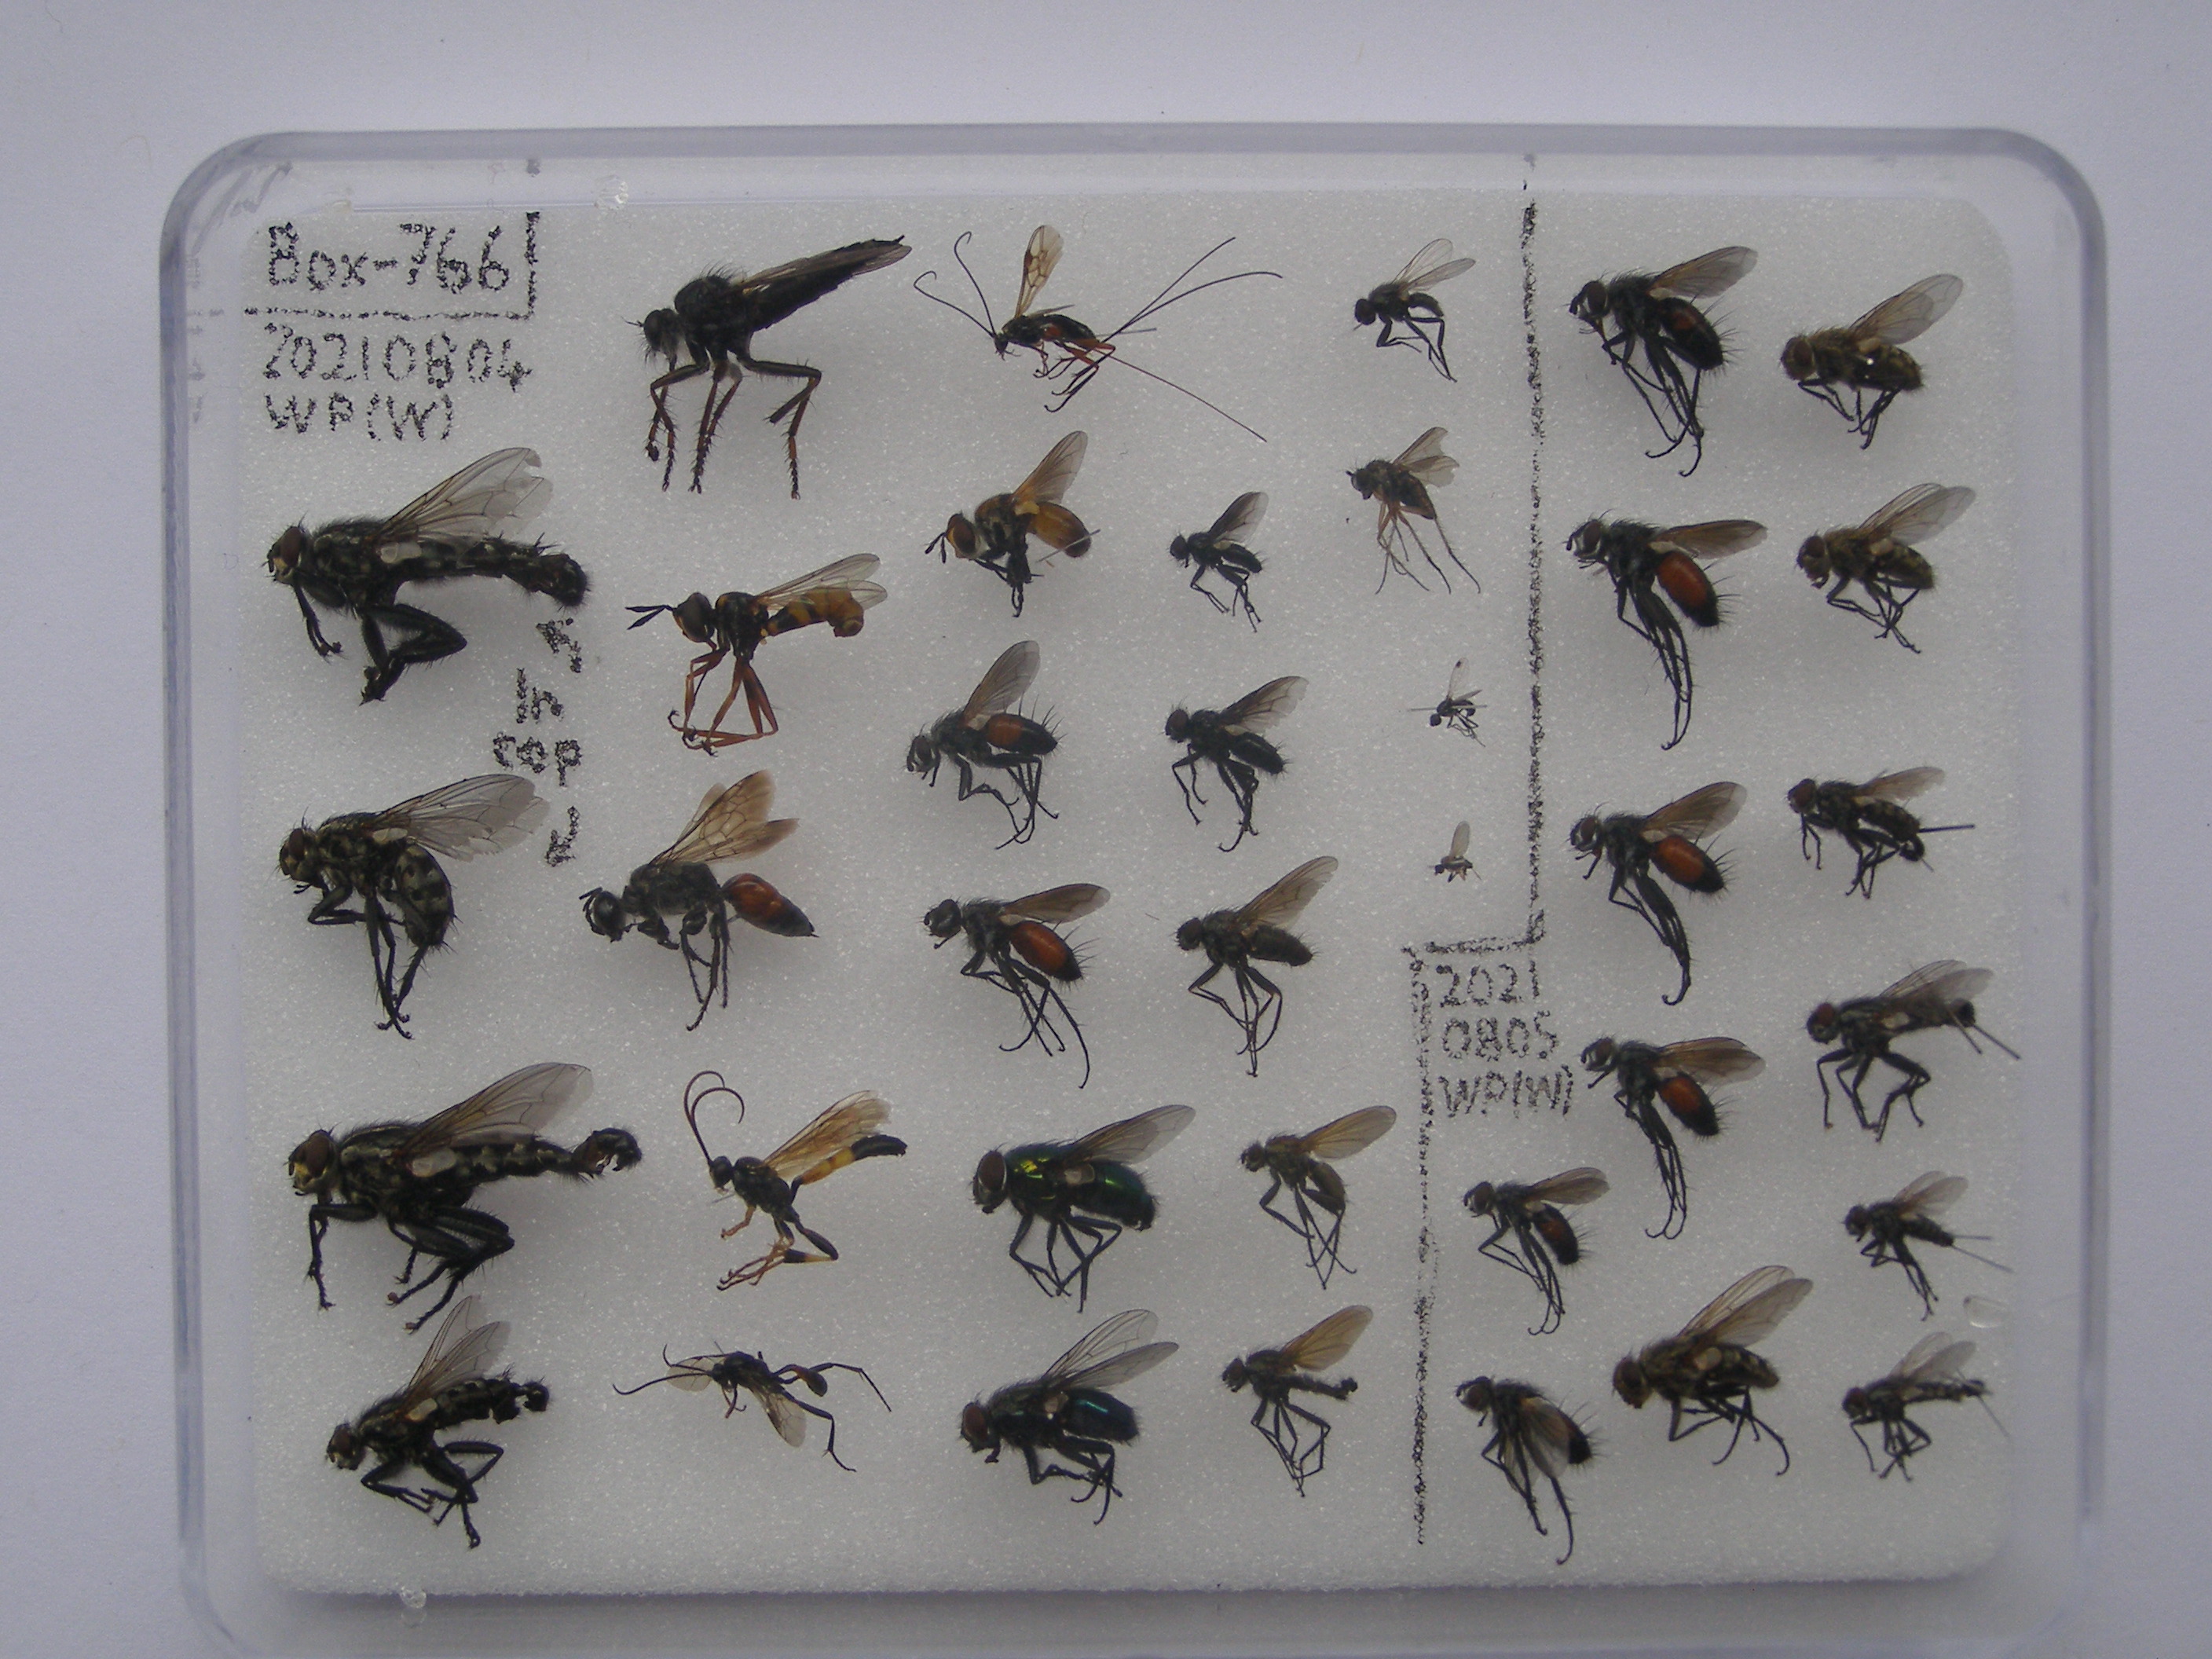 Box-766
20210804
WP(W)
In
top
2021
0805
WP(W)